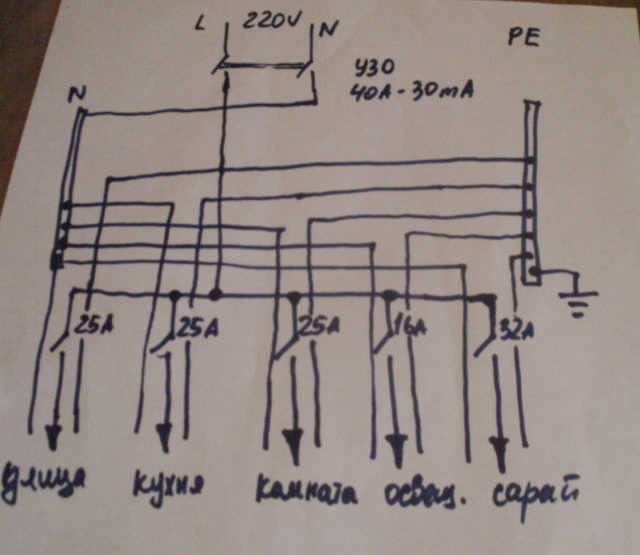 L 220V N
PE
УЗО
40А-30mA
N
25А 25А 25А 16А 32А
улица кухня комната освещ. сарай